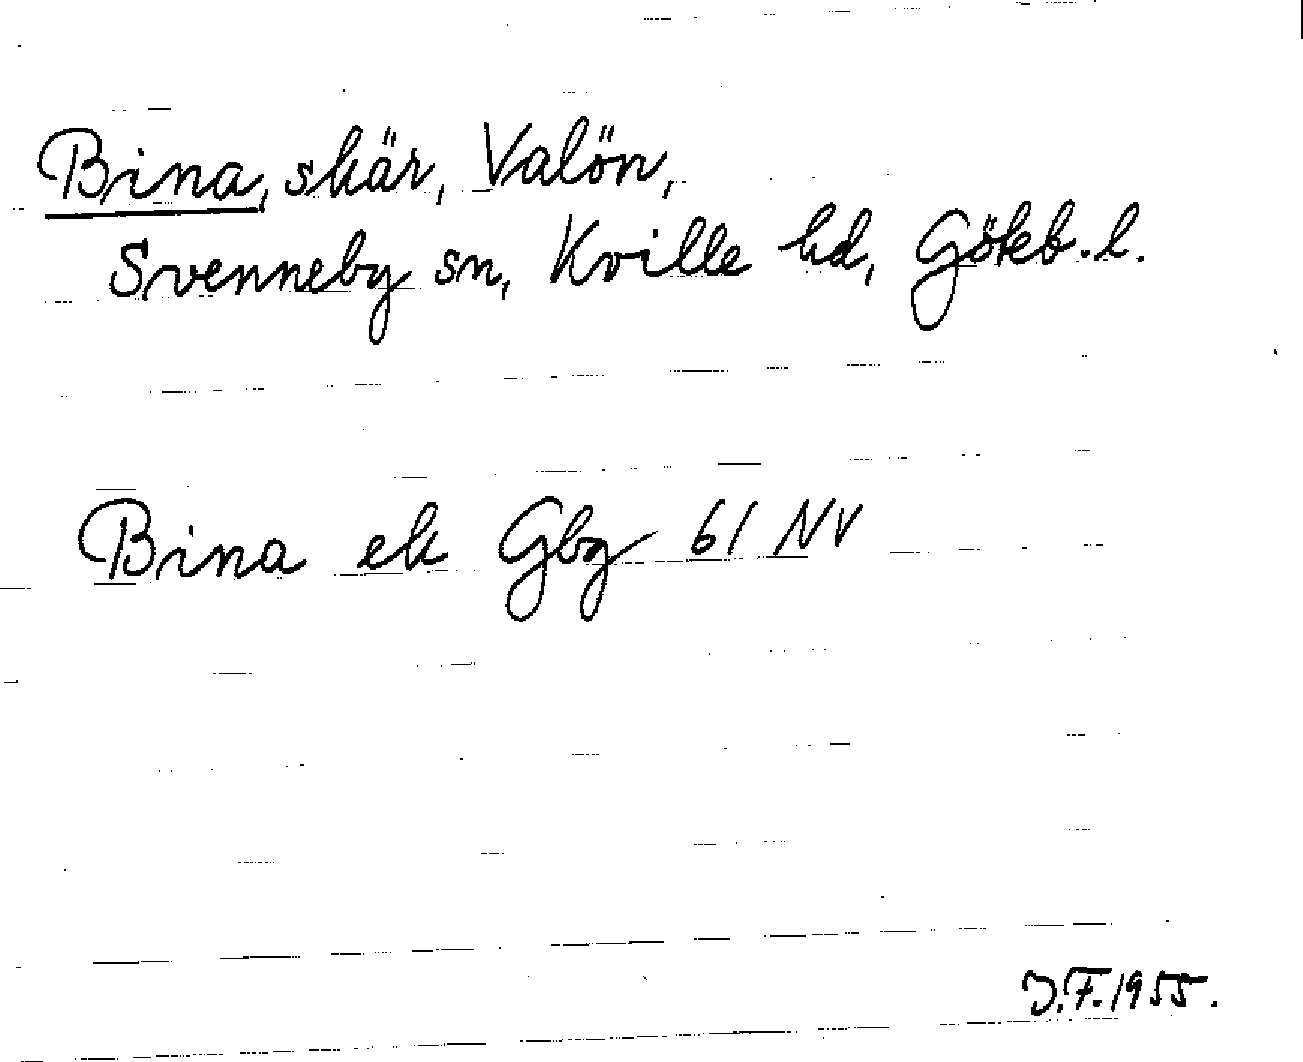 Bina, skär, Valön,
Svenneby sn, Kville hd, Göteb. l.
Bina ek Gbg 61 NV
J.F. 1955.